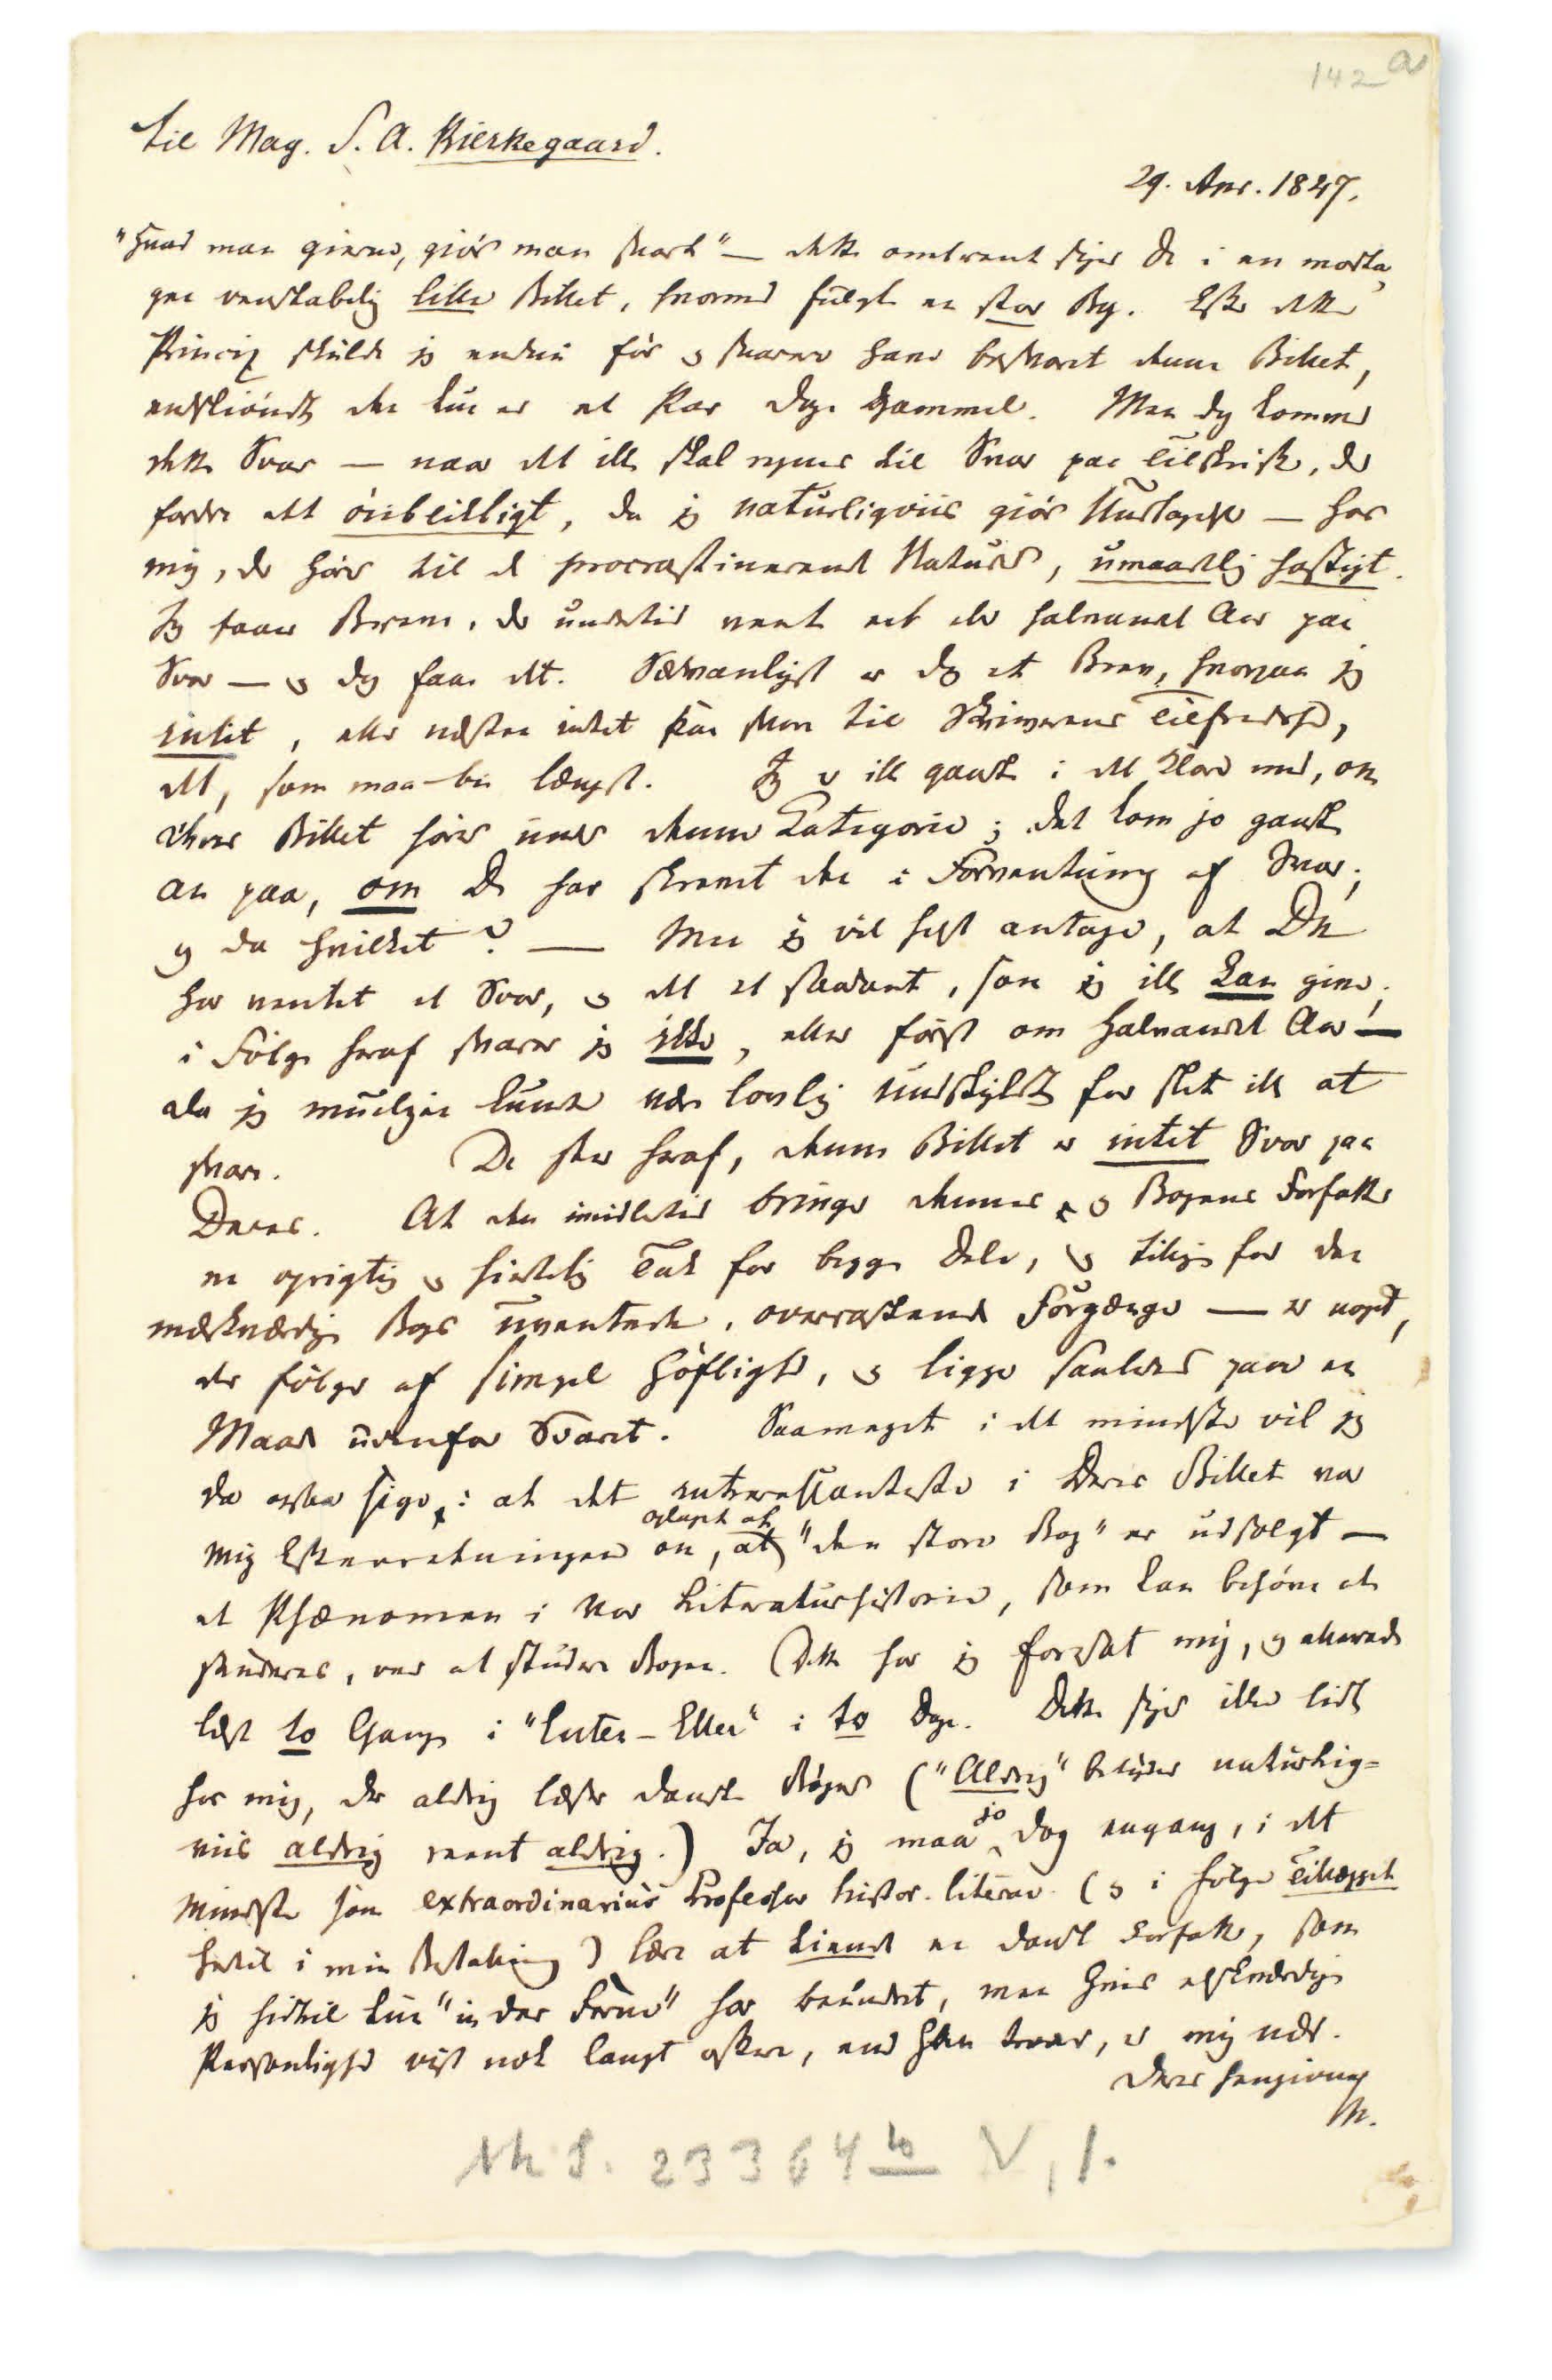 142 a
Til Mag. S. A. Kierkegaard.
29. Apr. 1847.
"Hvad man gierne, giør man snart" — dette omtrent siger De i en modta,
gen venskabelig lille Billet, hvormed fulgte en stor Bog. Efter dette
Princip skulde jeg endnu før og snarere have besvaret denne Billet,
endskiøndt den kun er et Par Dage gammel. Men dog kommer
dette Svar — naar det ikke skal regnes til Svar paa Tilskrift, der
fordre det øieblikligt, da jeg naturligviis giør Undtagelse — hos
mig, der hører til de procrastinerende Naturer, umaadelig hastigt.
Jeg faaer Breve, der undertid vente et eller halvandet Aar paa
Svar — og dog faae det. Sædvanligst er dog et Brev, hvorpaa jeg
intet, eller næsten intet kan svare til Skriverens Tilfredshed,
det, som maa bie længst. Jeg er ikke ganske i det Klare med, om
Deres Billet hører under denne Categorie; det kom jo ganske
an paa, om De har skrevet den i Forventning af Svar;
og da hvilket? — Men jeg vil helst antage, at De
har ventet et Svar, og det et saadant, som jeg ikke kan give;
i Følge heraf svarer jeg ikke, eller først om halvandet Aar —
da jeg mueligen kunde være lovlig undskyldt for slet ikke at
svare. De seer heraf, denne Billet er intet Svar paa
Deres. At den imidlertid bringer dennes og Bogens Forfatter
en oprigtig og hiertelig Tak for begge Dele, og tillige for den
mærkværdige Bogs uventede, overraskende Forgænger — er noget,
der følger af simpel Høflighed, og ligger saaledes paa en
Maade udenfor Svaret. Saameget i det mindste vil jeg
da ogsaa sige: at det interessanteste i Deres Billet var
mig Efterretningen om, at
"den store Bog" er udsolgt —
et Phænomen i vor Literaturhistorie, som kan behøve at
studeres, ved at studere Bogen. Dette har jeg foresat mig, og allerede
læst to Gange i "Enten – Eller" i to Dage. Dette siger ikke lidt
hos mig, der aldrig læser danske Bøger ("Aldrig" betyder naturlig=
viis aldrig reent aldrig.) Ja, jeg maa jo dog engang, i det
mindste som extraordinarius Professor histor. literar. (og i Følge Tillægget
hertil i min Bestalling) lære at kiende en dansk Forfatter, som
jeg hidtil kun "in der Ferne" har beundret, men hvis elskværdige
Personlighed vist nok langt oftere, end han troer, er mig nær.
Deres hengivne
M.
NkS. 2336 4to V, 1.